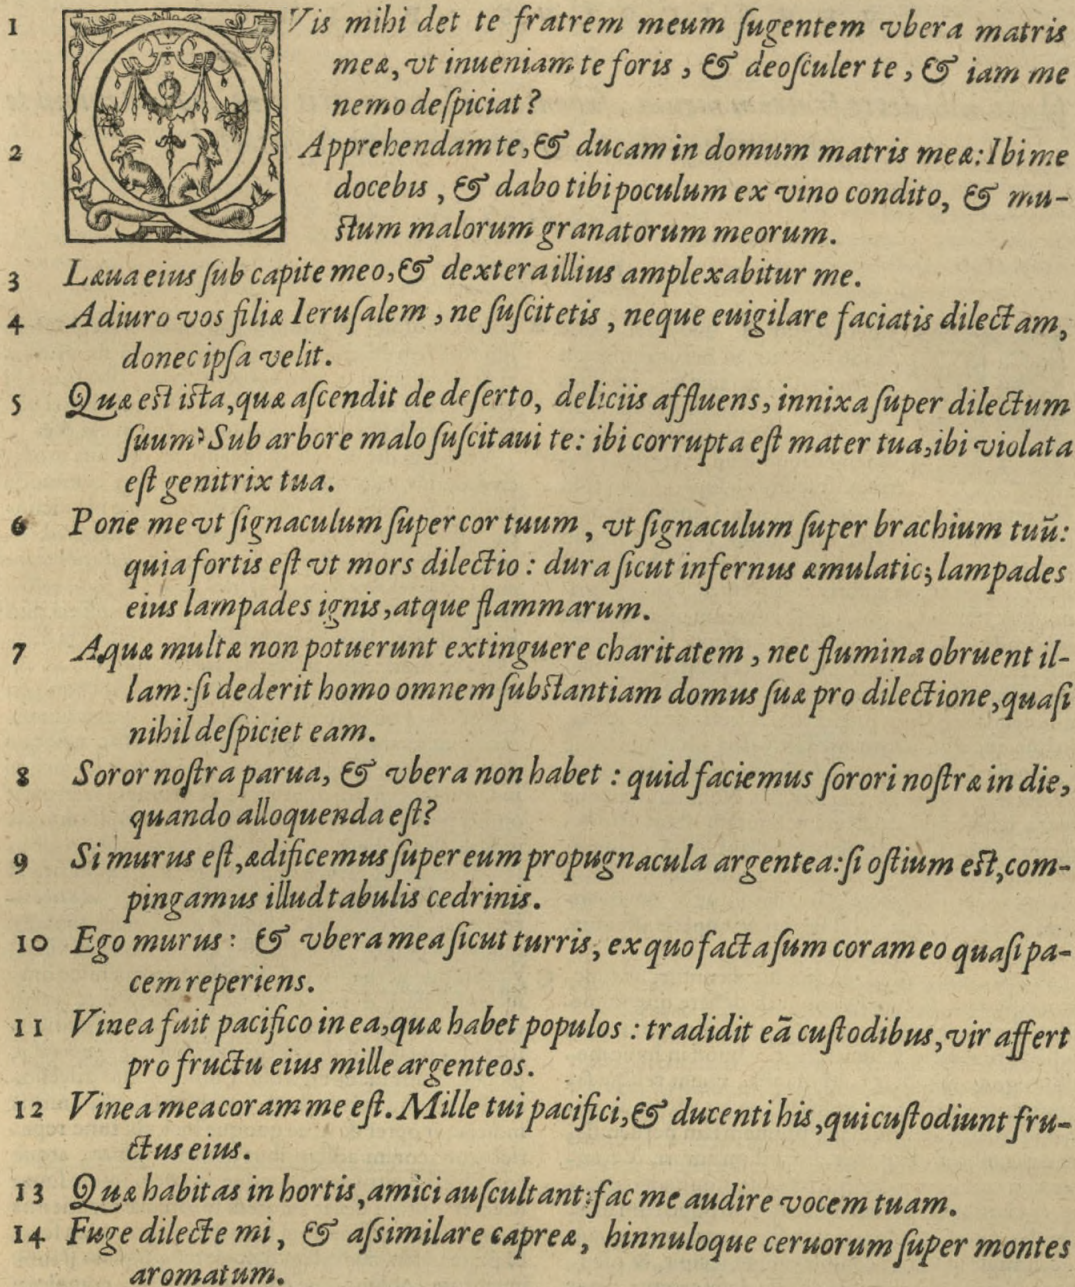 1 QVis mihi det te fratrem meum ſugentem vbera matris
meæ, vt inueniam te foris, & deoſculer te, & iam me
nemo deſpiciat?
2 Apprehendam te, & ducam in domum matris meæ: Ibi me
docebis, & dabo tibi poculum ex vino condito, & mu-
ſtum malorum granatorum meorum.
3 Læua eius ſub capite meo, & dextera illius amplexabitur me.
4 Adiuro vos filiæ Ieruſalem, ne ſuſcitetis, neque euigilare faciatis dilectam,
donec ipſa velit.
5 Quæ eſt iſta, quæ aſcendit de deſerto, deliciis affluens, innixa ſuper dilectum
ſuum? Sub arbore malo ſuſcitaui te: ibi corrupta eſt mater tua, ibi violata
eſt genitrix tua.
6 Pone me vt ſignaculum ſuper cor tuum, vt ſignaculum ſuper brachium tuū:
quia fortis eſt vt mors dilectio: dura ſicut infernus æmulatio; lampades
eius lampades ignis, atque flammarum.
7 Aquæ multæ non potuerunt extinguere charitatem, nec flumina obruent il-
lam: ſi dederit homo omnem ſubſtantiam domus ſuæ pro dilectione, quaſi
nihil deſpiciet eam.
8 Soror noſtra parua, & vbera non habet: quid faciemus ſorori noſtræ in die,
quando alloquenda eſt?
9 Si murus eſt, ædificemus ſuper eum propugnacula argentea: ſi oſtium eſt, com-
pingamus illud tabulis cedrinis.
10 Ego murus: & vbera mea ſicut turris, ex quo facta ſum coram eo quaſi pa-
cem reperiens.
11 Vinea fuit pacifico in ea, quæ habet populos: tradidit eā cuſtodibus, vir affert
pro fructu eius mille argenteos.
12 Vinea mea coram me eſt. Mille tui pacifici, & ducenti his, qui cuſtodiunt fru-
ctus eius.
13 Quæ habitas in hortis, amici auſcultant: fac me audire vocem tuam.
14 Fuge dilecte mi, & aſsimilare capreæ, hinnuloque ceruorum ſuper montes
aromatum.